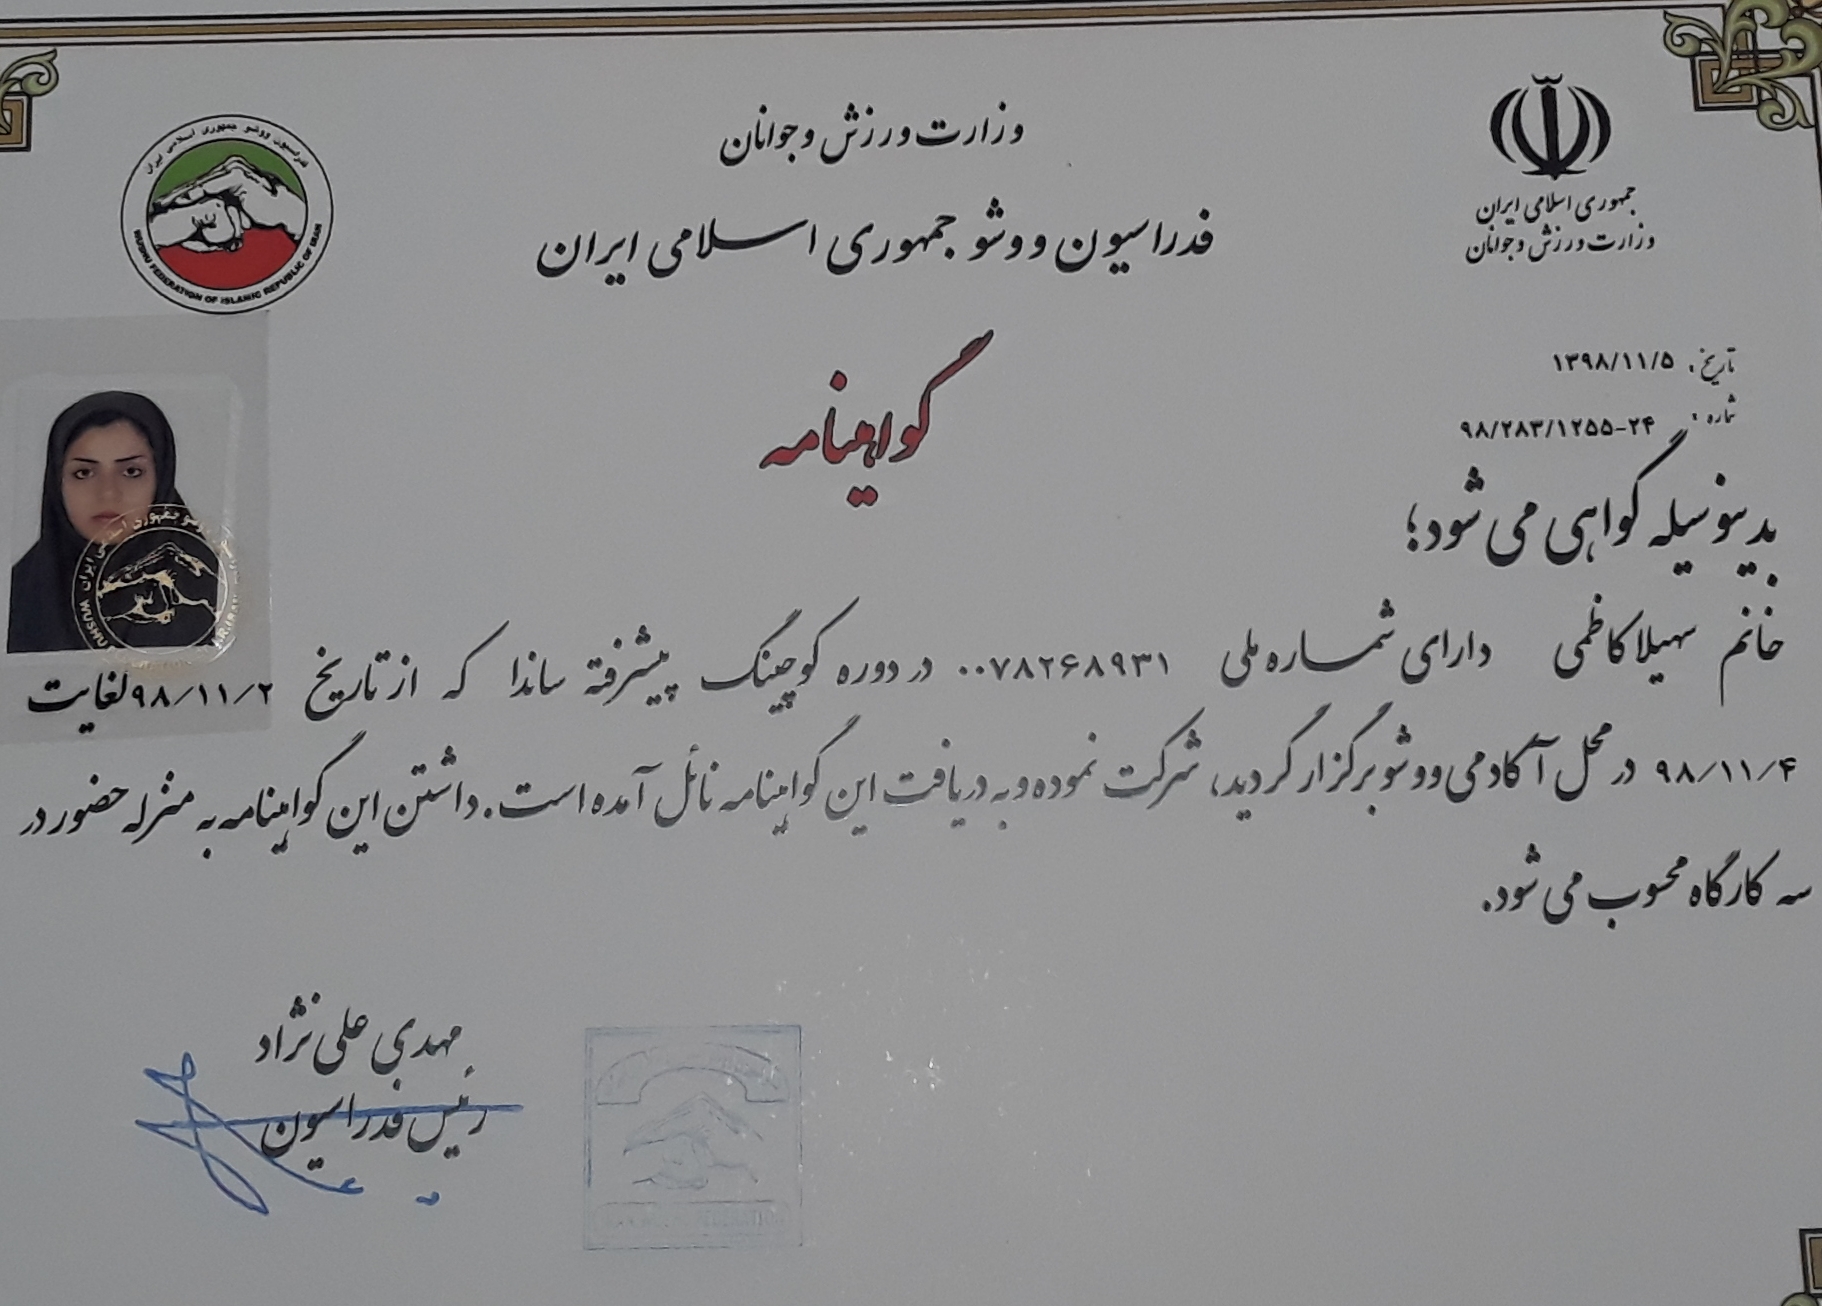 وزارت ورزش و جوانان
فدراسیون ووشو جمهوری اسلامی ایران
فدراسیون ووشو جمهوری اسلامی ایران
WUSHU FEDERATION OF ISLAMIC REPUBLIC OF IRAN
جمهوری اسلامی ایران
وزارت ورزش و جوانان
تاریخ: ۱۳۹۸/۱۱/۵
شماره: ۹۸/۲۸۳/۱۲۵۵-۲۴
گواهینامه
بدینوسیله گواهی می شود؛
خانم سهیلا کاظمی دارای شماره ملی ۰۰۷۸۲۶۸۹۳۱ در دوره کوچینگ پیشرفته ساندا که از تاریخ ۹۸/۱۱/۲ لغایت
۹۸/۱۱/۴ در محل آکادمی ووشو برگزار گردید، شرکت نموده و به دریافت این گواهینامه نائل آمده است. داشتن این گواهینامه به منزله حضور در
سه کارگاه محسوب می شود.
مهدی علی نژاد
رئیس فدراسیون